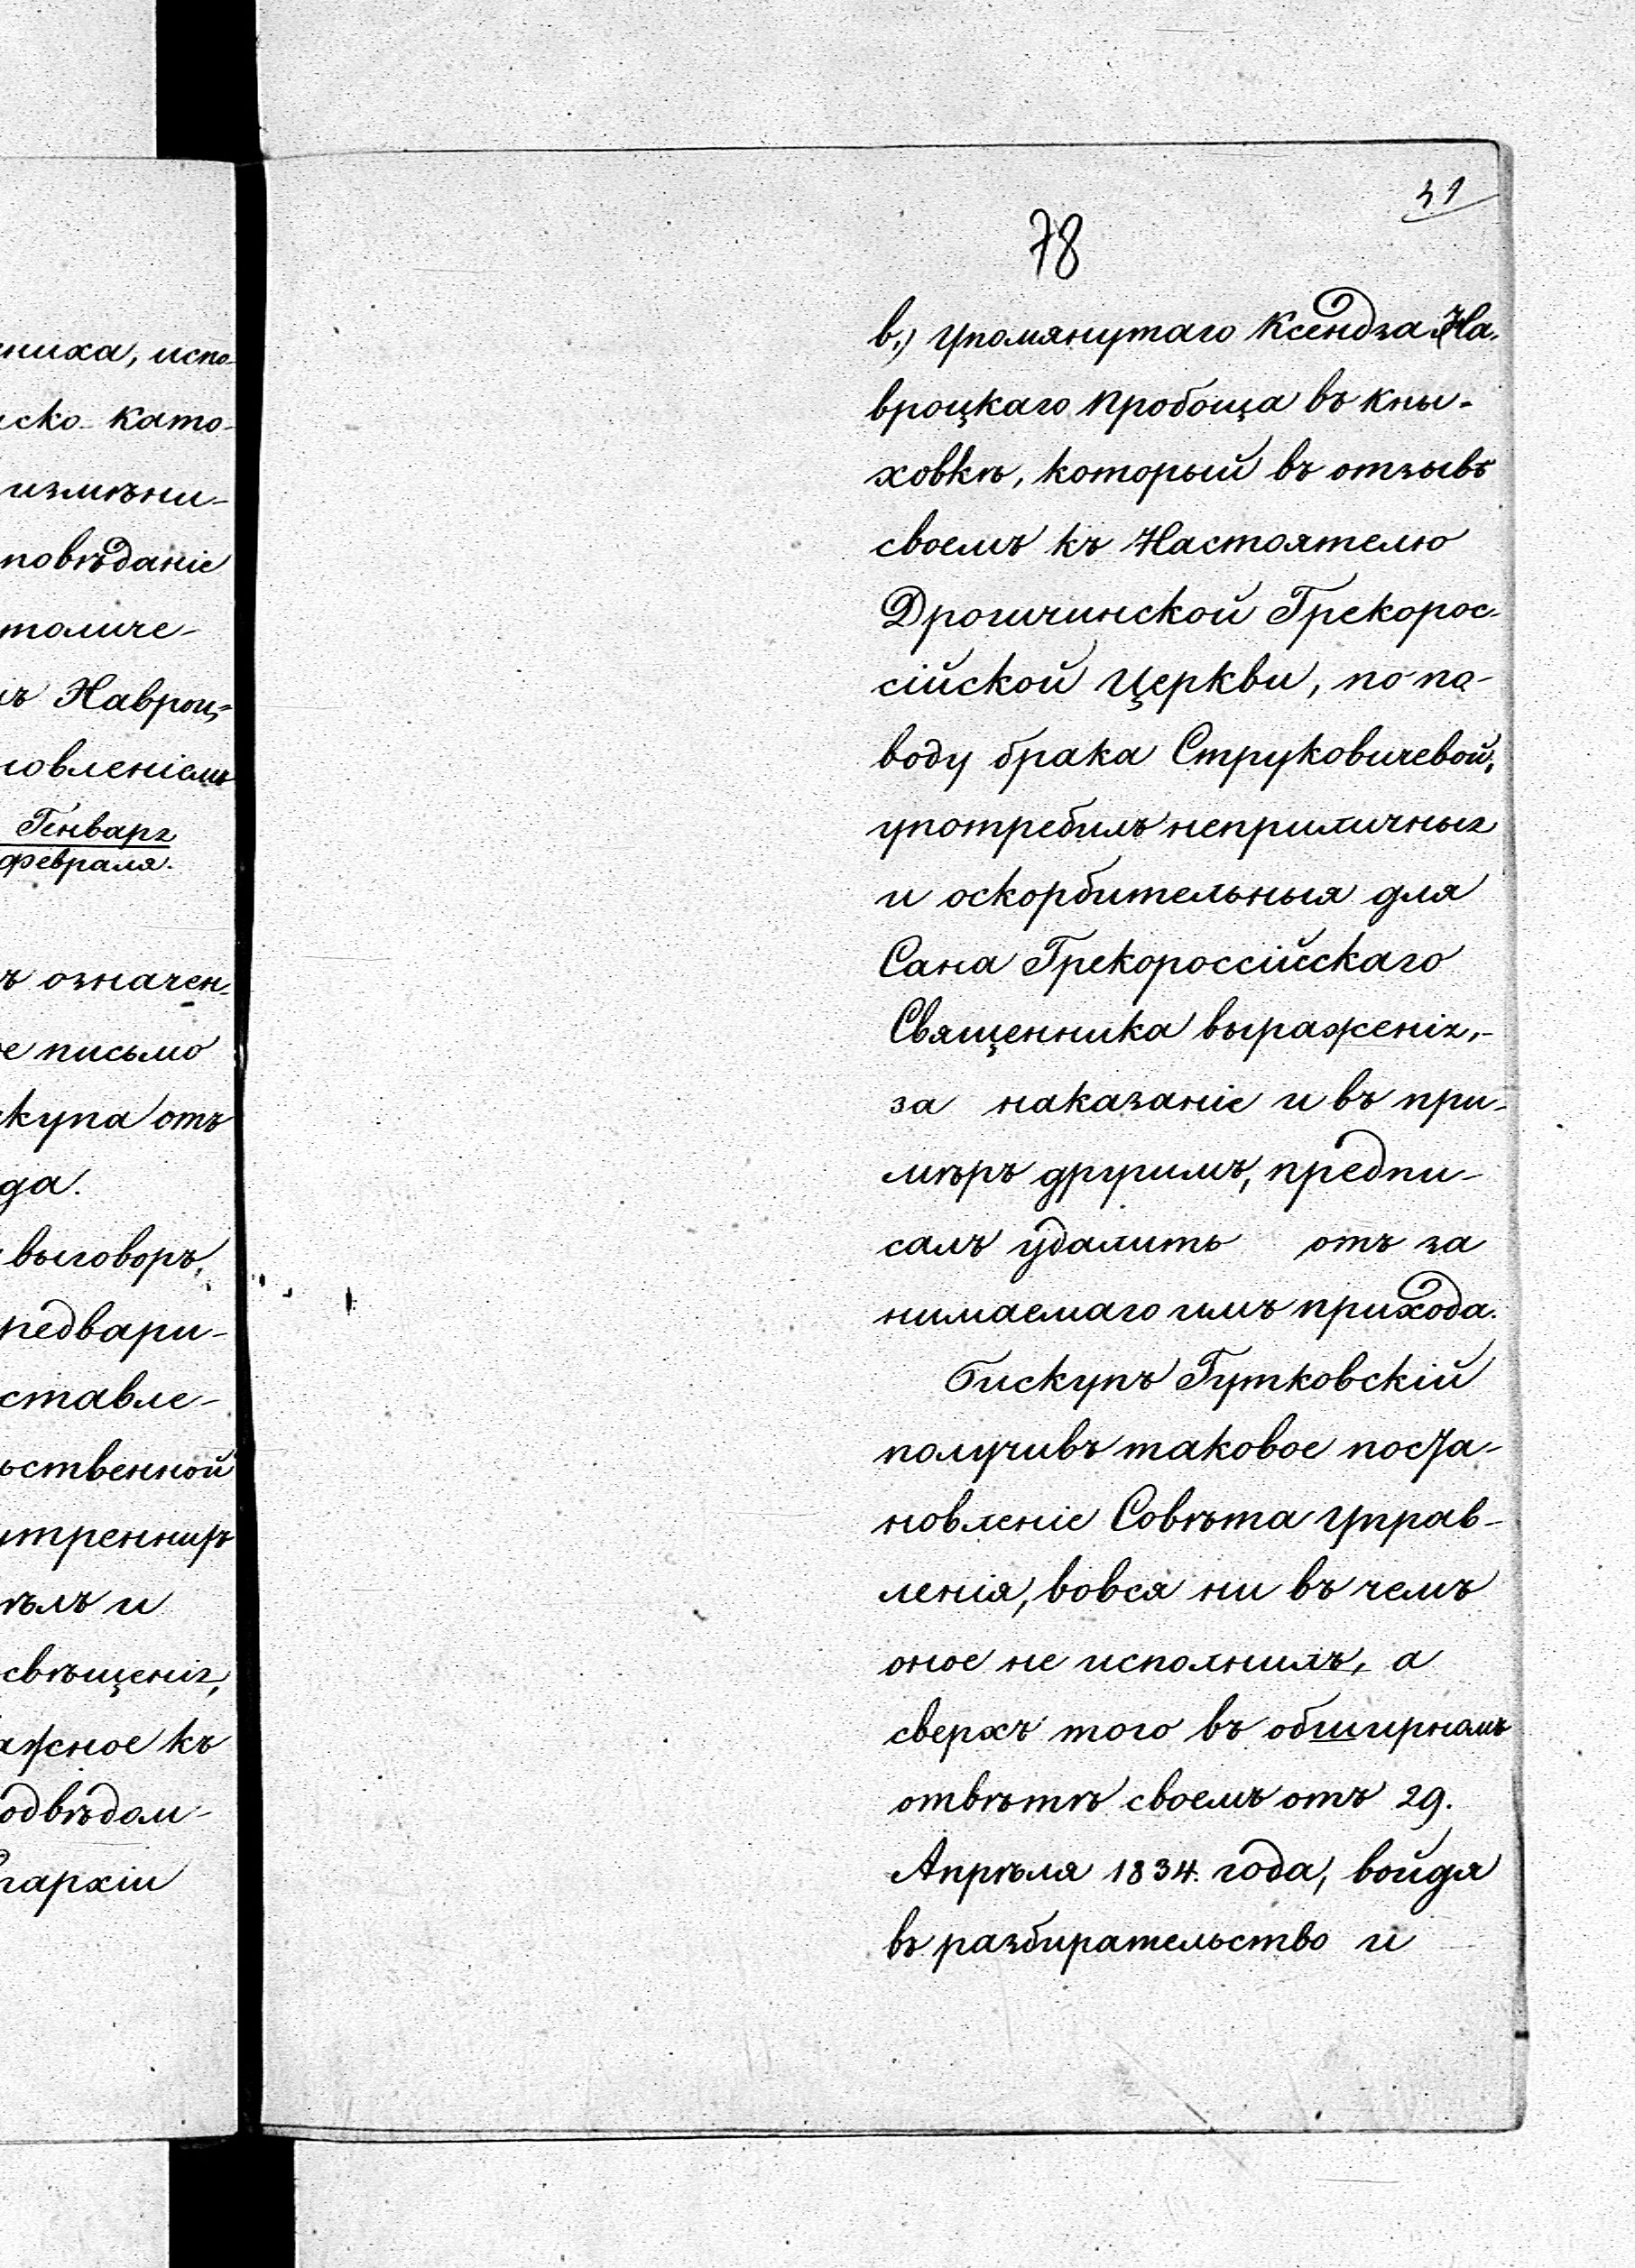 ниха, испо-
ско-като-
измѣни-
повѣданіе
толиче-
ъ Навроц-
новленіемъ
Генваря
Февраля.
ъ означен-
е письмо
купа отъ
да.
выговоръ,
редвари-
ставле-
ственной
утреннихъ
ѣлъ и
свѣщенія,
ажное къ
одвѣдом-
Епархіи
31
78
в.) упомянутаго Ксендза На-
вроцкаго Пробоща въ Кны-
ховкѣ, который въ отзывѣ
своемъ къ Настоятелю
Дрогичинской Грекорос-
сійской Церкви, по по-
воду брака Струковичевой,
употребилъ неприличныя
и оскорбительныя для
Сана Грекороссійскаго
Священника выраженія,-
за наказаніе и въ при-
мѣръ другимъ, предпи-
салъ удалить отъ за
нимаемаго имъ прихода.
Бискупъ Гутковскій
получивъ таковое поста-
новленіе Совѣта Управ-
ленія, вовся ни въ чемъ
оное не исполнилъ, а
сверхъ того въ обширномъ
отвѣтѣ своемъ отъ 29.
Апрѣля 1834. года, войдя
въ разбирательство и